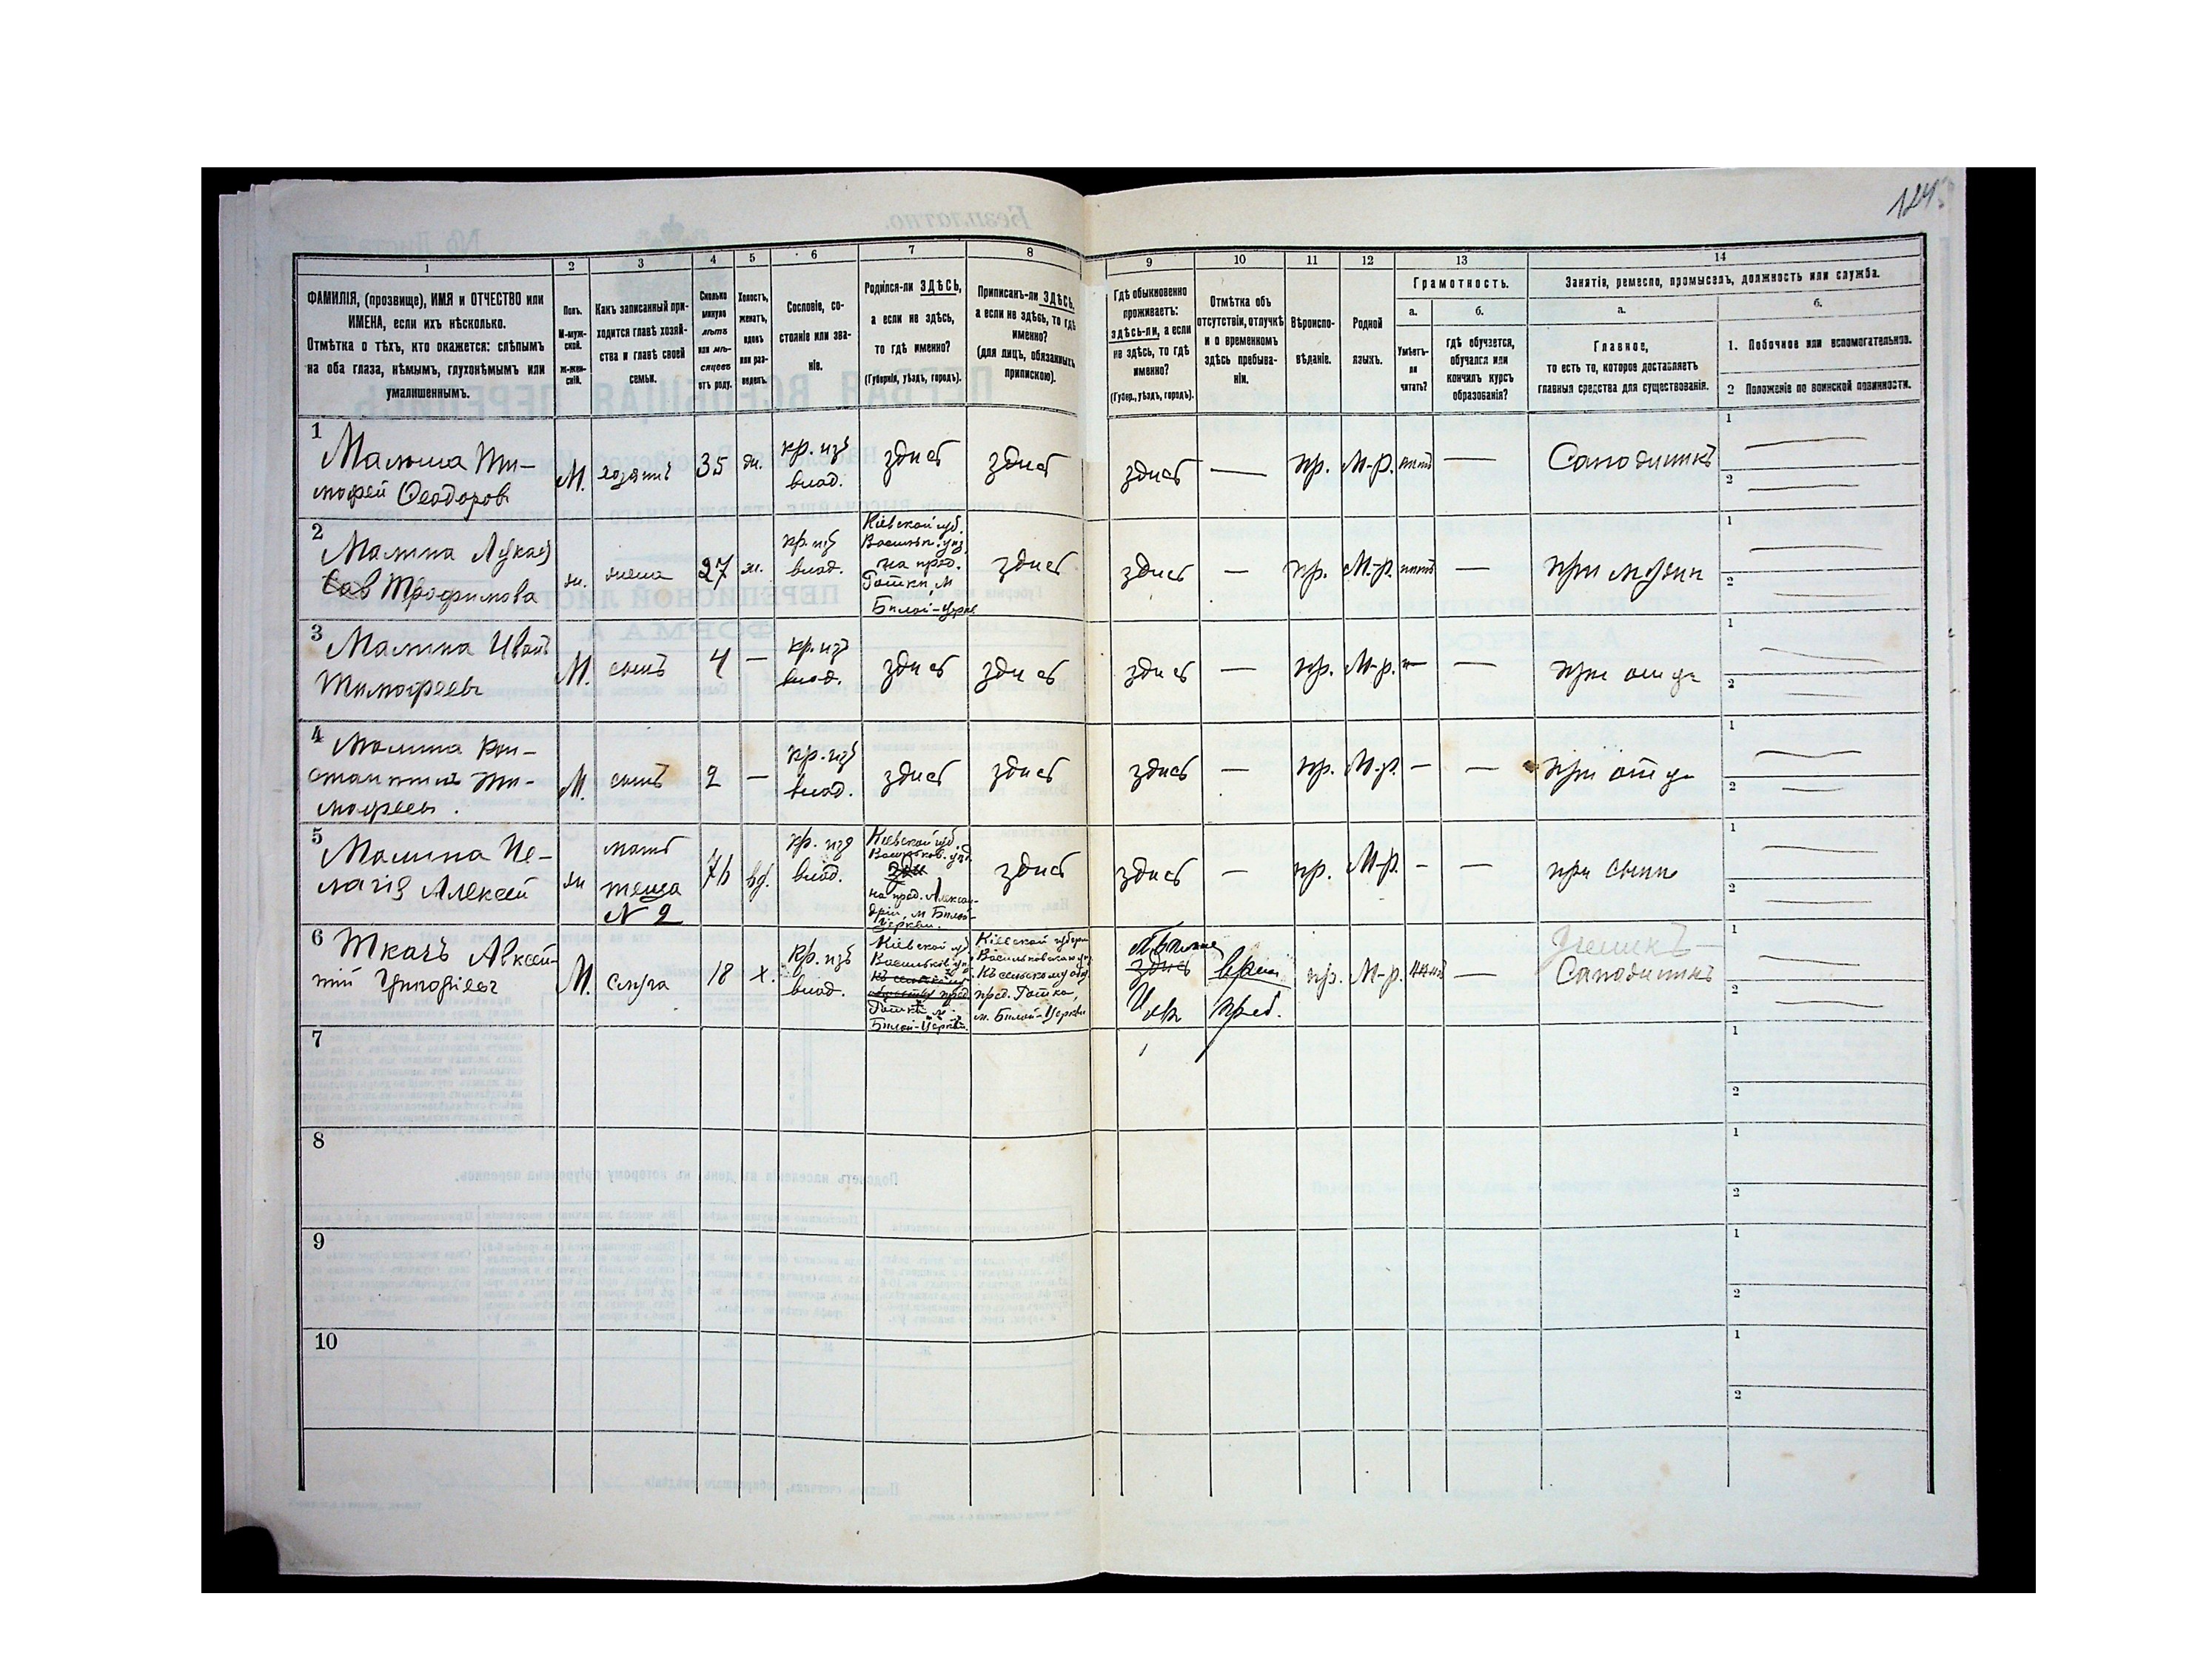 124
1
2
3
4
5
6
7
8
9
10
11
12
13
14
ФАМИЛІЯ, (прозвище), ИМЯ и ОТЧЕСТВО или
ИМЕНА, если ихъ нѣсколько.
Отмѣтка о тѣхъ, кто окажется: слѣпымъ
на оба глаза, нѣмымъ, глухонѣмымъ или
умалишеннымъ.
Полъ.
М-муж-
ской.
ж-жен-
скій.
Какъ записанный при-
ходится главѣ хозяй-
ства и главѣ своей
семьи.
Сколько
минуло
лѣтъ
или мѣ-
сяцевъ
отъ роду.
Холостъ,
женатъ,
вдовъ
или раз-
веденъ.
Сословіе, со-
стояніе или зва-
ніе.
Родился-ли ЗДѢСЬ,
а если не здѣсь,
то гдѣ именно?
(Губернія, уѣздъ, городъ).
Приписанъ-ли ЗДѢСЬ,
а если не здѣсь, то гдѣ
именно?
(для лицъ, обязанныхъ
припискою).
Гдѣ обыкновенно
проживаетъ:
здѣсь-ли, а если
не здѣсь, то гдѣ
именно?
(Губер., уѣздъ, городъ).
Отмѣтка объ
отсутствіи, отлучкѣ
и о временномъ
здѣсь пребыва-
ніи.
Вѣроиспо-
вѣданіе.
Родной
языкъ.
Грамотность.
а.
Умѣетъ-
ли
читать?
б.
гдѣ обучается,
обучался или
кончилъ курсъ
образованія?
Занятія, ремесло, промыселъ, должность или служба.
а.
Главное,
то есть то, которое доставляетъ
главныя средства для существованія.
б.
1. Побочное или вспомогательное.
2 Положеніе по воинской повинности.
1
Малина Ти-
мофей Ѳеодоров
М. хозяинъ 35 ж. кр. изъ
влад.
здѣсь здѣсь здѣсь — пр. М-р. нѣтъ — Саподишикъ
1 —
2 —
2
Малина Лукія
Трофимова
ж. жена 27 ж. кр. изъ
влад.
Кіевской губ.
Васильк. уѣз.
на пред.
Гатки М
Бѣлой-Церкв
здѣсь здѣсь — пр. М-р. нѣтъ — при мужѣ
1 —
2 —
3
Малина Иванъ
Тимофеевъ
М. сынъ 4 — кр. изъ
влад.
здѣсь здѣсь здѣсь — пр. М-р. — — при отцѣ
1 —
2 —
4
Малина Кон-
стантинъ Ти-
мофеевъ.
М. сынъ 2 — кр. изъ
влад.
здѣсь здѣсь здѣсь — пр. М-р. — — при отцѣ
1 —
2 —
5
Малина Пе-
лагія Алексѣй
ж мать
теща
№ 2
76 вд. кр. изъ
влад.
Кіевской губ.
Васильков. уѣз.
на пред. Алексан-
дріи, м Бѣлой-
Церкви.
здѣсь здѣсь — пр. М-р. — — при сынѣ
1 —
2 —
6
Ткачъ Авксен-
тій Григорьевъ
М. Слуга 18 х. кр. изъ
влад.
Кіевской губ
Васильков. уѣз.
къ сельскому
обществу пред
Гатки м.
Бѣлой-Церкви.
Кіевской губерн
Васильковскаго уѣз.
къ сельскому общ
пред. Гатка,
м. Бѣлой-Церкви
здѣсь
врем
преб.
пр. М-р. нѣтъ —
Саподишикъ
1 —
2 —
7
1
2
8
1
2
9
1
2
10
1
2